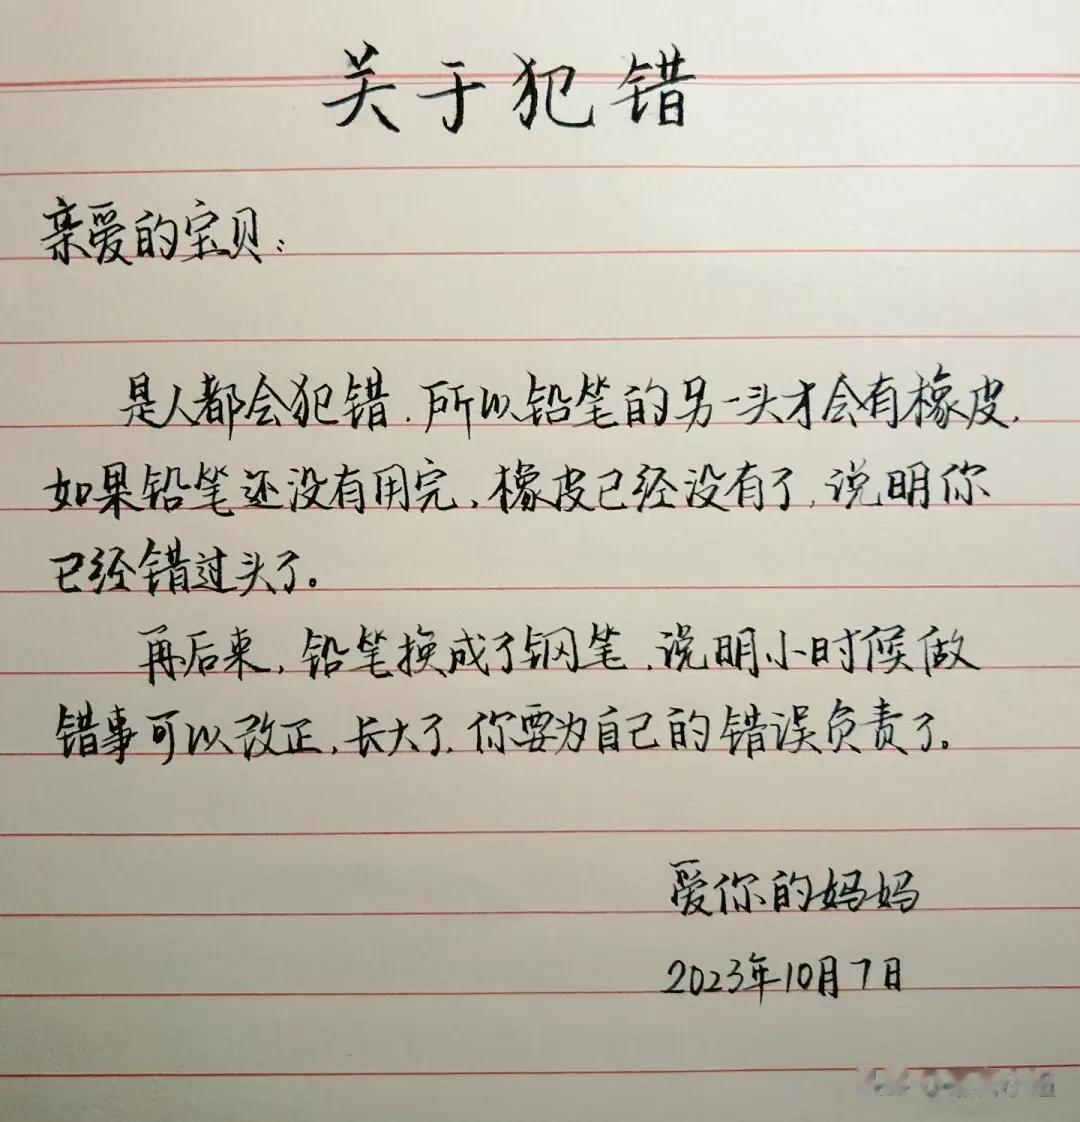 关于犯错
亲爱的宝贝：
是人都会犯错，所以铅笔的另一头才会有橡皮，
如果铅笔还没有用完，橡皮已经没有了，说明你
已经错过头了。
再后来，铅笔换成了钢笔，说明小时候做
错事可以改正，长大了，你要为自己的错误负责了。
爱你的妈妈
2023年10月7日